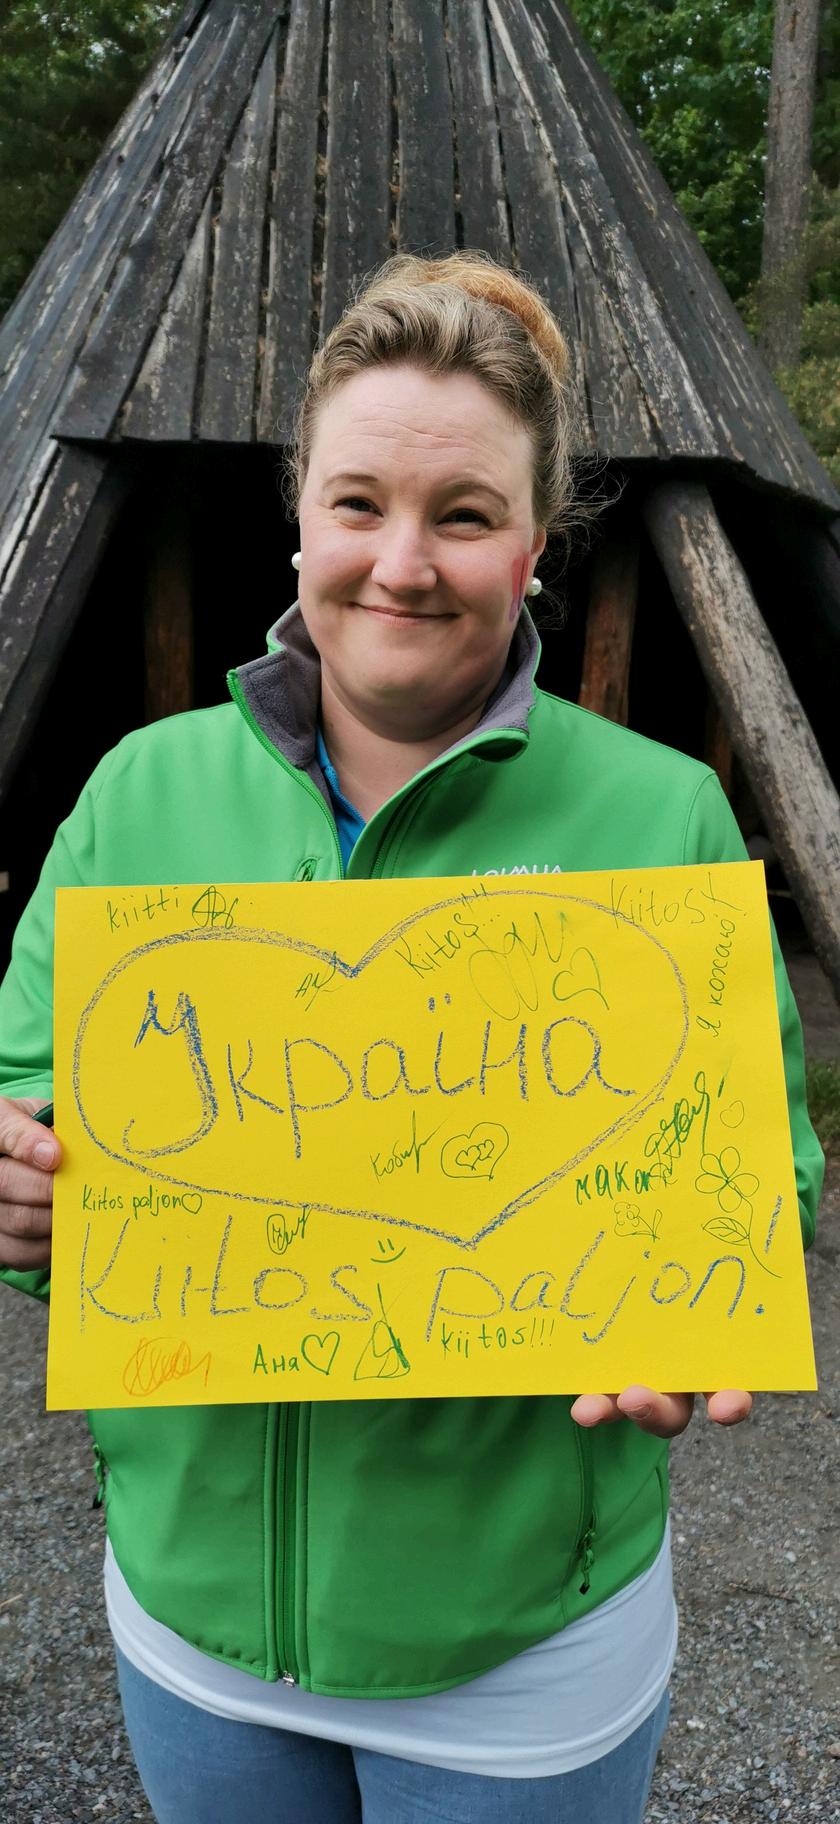 kiitti
Kiitos!!!
Kiitos!
Я кохаю!
Україна
Kiitos paljon
Kiitos paljon!
Аня
kiitos!!!